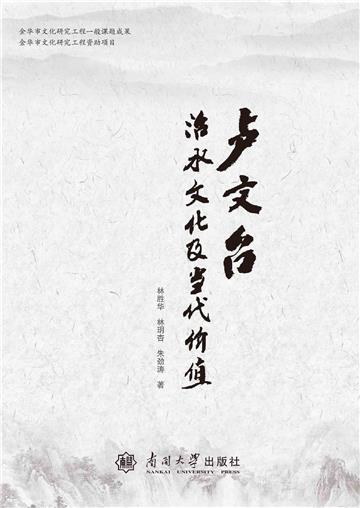 金华市文化研究工程一般课题成果
金华市文化研究工程资助项目
卢文台
治水文化及当代价值
林胜华 林玥杏 朱劲涛 著
南开大学出版社
NANKAI UNIVERSITY PRESS